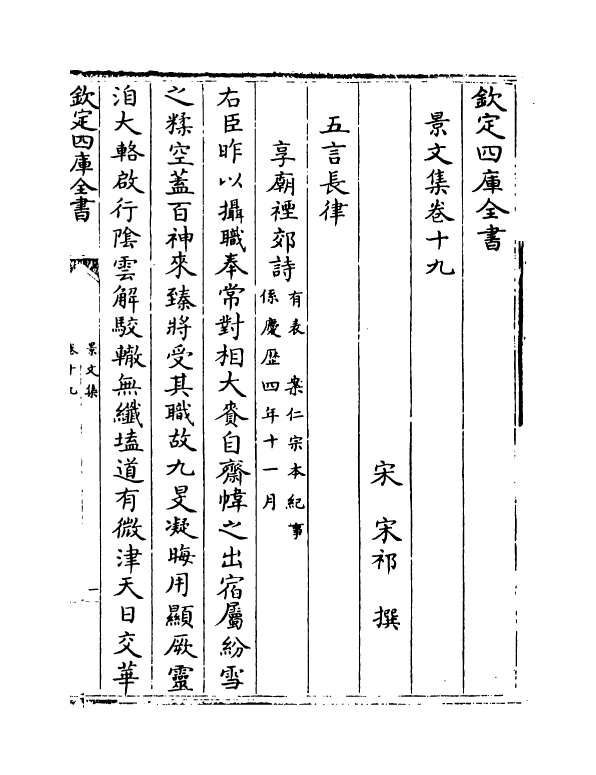 欽定四庫全書
景文集卷十九
宋 宋祁 撰
五言長律
享廟禋郊詩有表 案仁宗本紀事
係慶歴四年十一月
右臣昨以攝職奉常對相大賚自齋幃之出宿屬紛雪
之糅空蓋百神來臻將受其職故九旻凝晦用顯厥靈
洎大輅啟行陰雲解駮轍無纖壒道有微津天日交華
欽定四庫全書
景文集
卷十九
一